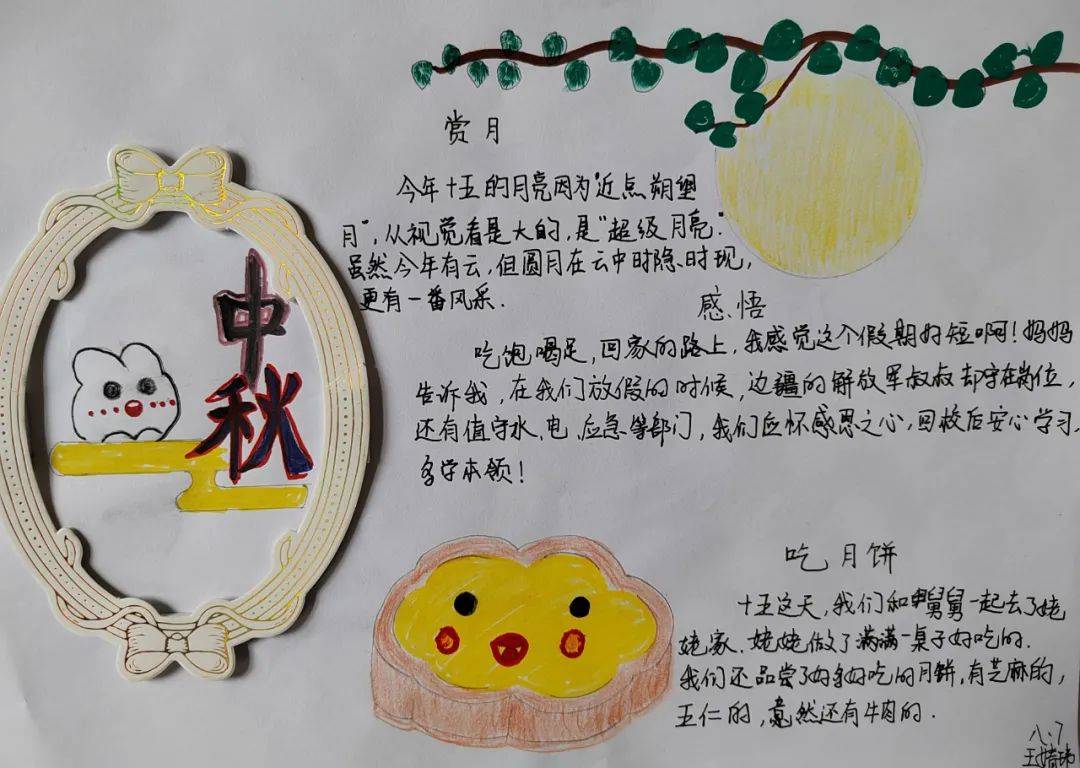 中秋
赏月
今年十五的月亮因为"近点朔望
月",从视觉看是大的,是"超级月亮".
虽然今年有云,但圆月在云中时隐、时现,
更有一番风采.
感、悟
吃饱喝足,回家的路上,我感觉这个假期好短啊!妈妈
告诉我,在我们放假的时候,边疆的解放军叔叔却守在岗位,
还有值守水、电、应急等部门,我们应怀感恩之心,回校后安心学习,
多学本领!
吃月饼
十五这天,我们和舅舅一起去了姥
姥家、姥姥做了满满一桌子好吃的.
我们还品尝了好多好吃的月饼,有芝麻的,
五仁的,竟然还有牛肉的.
八.7